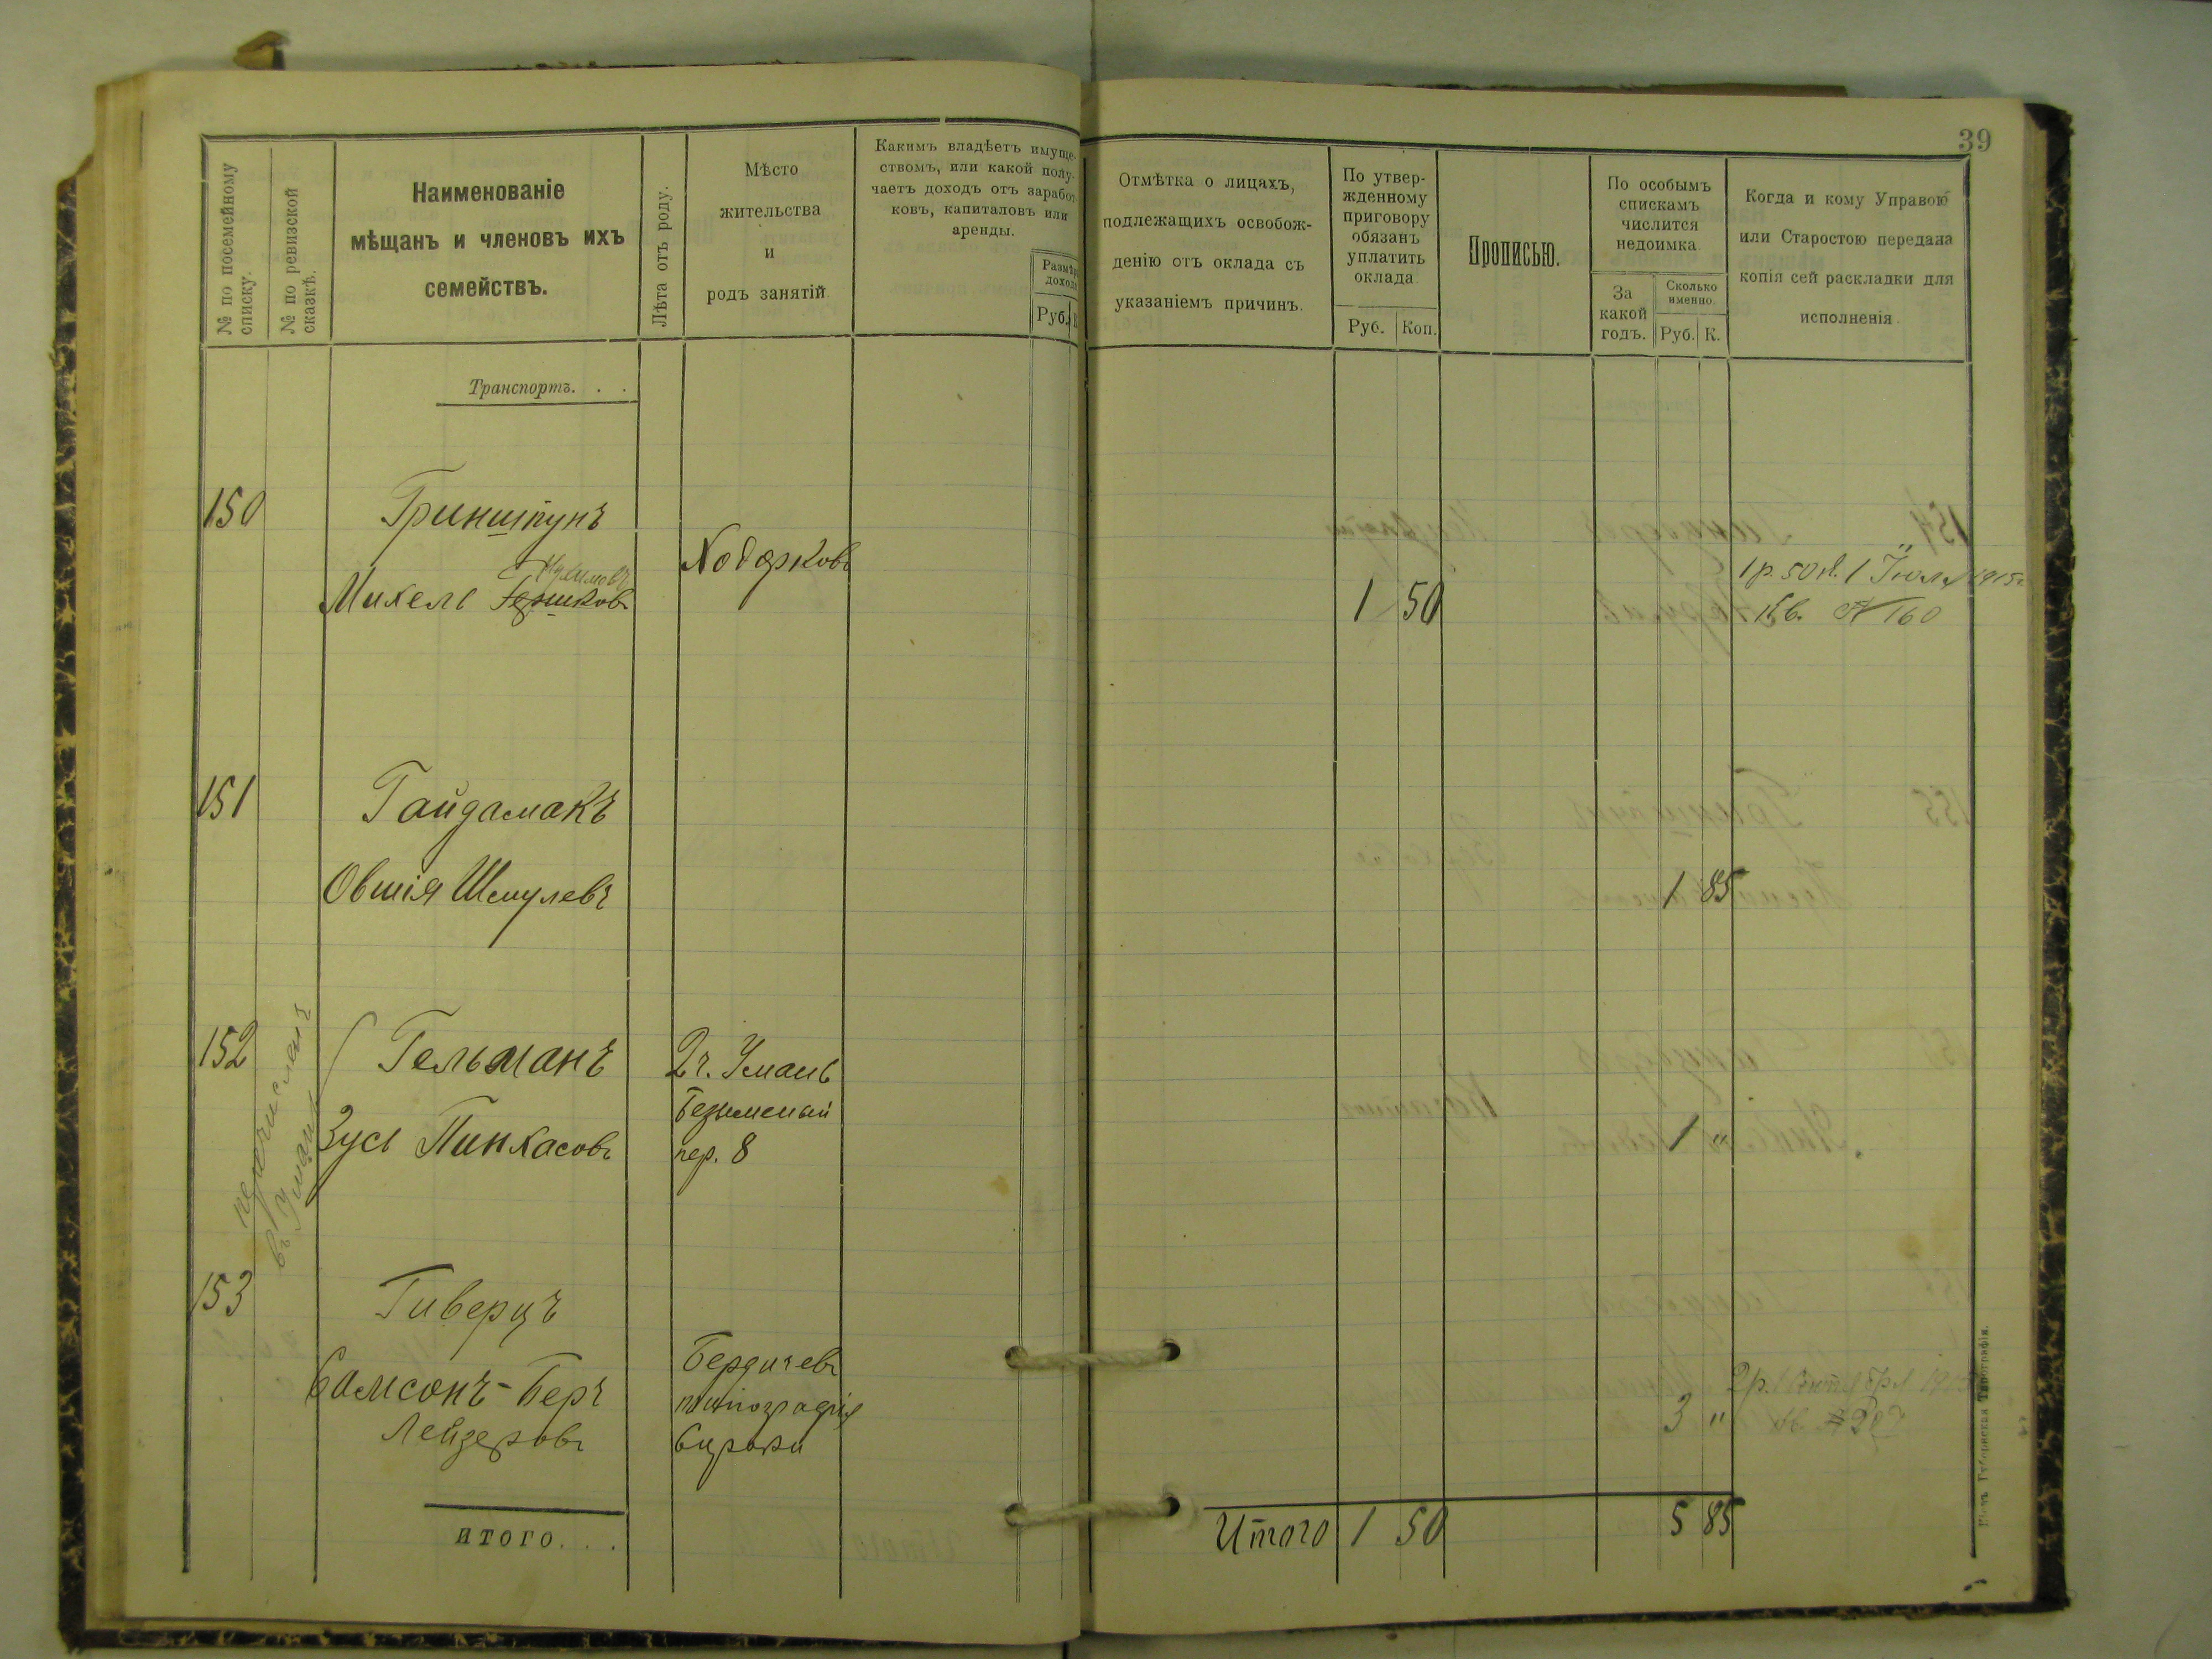 39
№ по посемейному
списку.
№ по ревизской
сказкѣ.
Наименованіе
мѣщанъ и членовъ ихъ
семействъ.
Лѣта отъ роду.
Мѣсто
жительства
и
родъ занятій
Какимъ владѣетъ имуще-
ствомъ, или какой полу-
чаетъ доходъ отъ заработ-
ковъ, капиталовъ или
аренды.
Размѣръ
дохода
Руб.
Отмѣтка о лицахъ,
подлежащихъ освобож-
денію отъ оклада съ
указаніемъ причинъ.
По утвер-
жденному
приговору
обязанъ
уплатить
оклада
Руб. Коп.
Прописью.
По особымъ
спискамъ
числится
недоимка
За
какой
годъ.
Сколько
именно.
Руб. К.
Когда и кому Управою
или Старостою передана
копія сей раскладки для
исполненія
Транспортъ. . .
150 Гринштунъ
Ходорковъ
Нухимовъ
Михель Гершковъ
1 50
1 р. 50 к. 1 Іюля 1915г
кв. № 160
151 Гайдамакъ
Овшія Шмулевъ
1 85
152 Гельманъ
Зусь Пинхасовъ
перечисленъ
въ Умань
2ч. Умань
Безыменый
пер. 8
1 "
153 Гиверцъ
Самсонъ-Беръ
Лейзеровъ
Бердичевъ
типографія
3 "
2 р. 1 Сентября
кв. №
итого. . .
Итого 1 50
5 85
Кіевъ. Губернская Типографія.